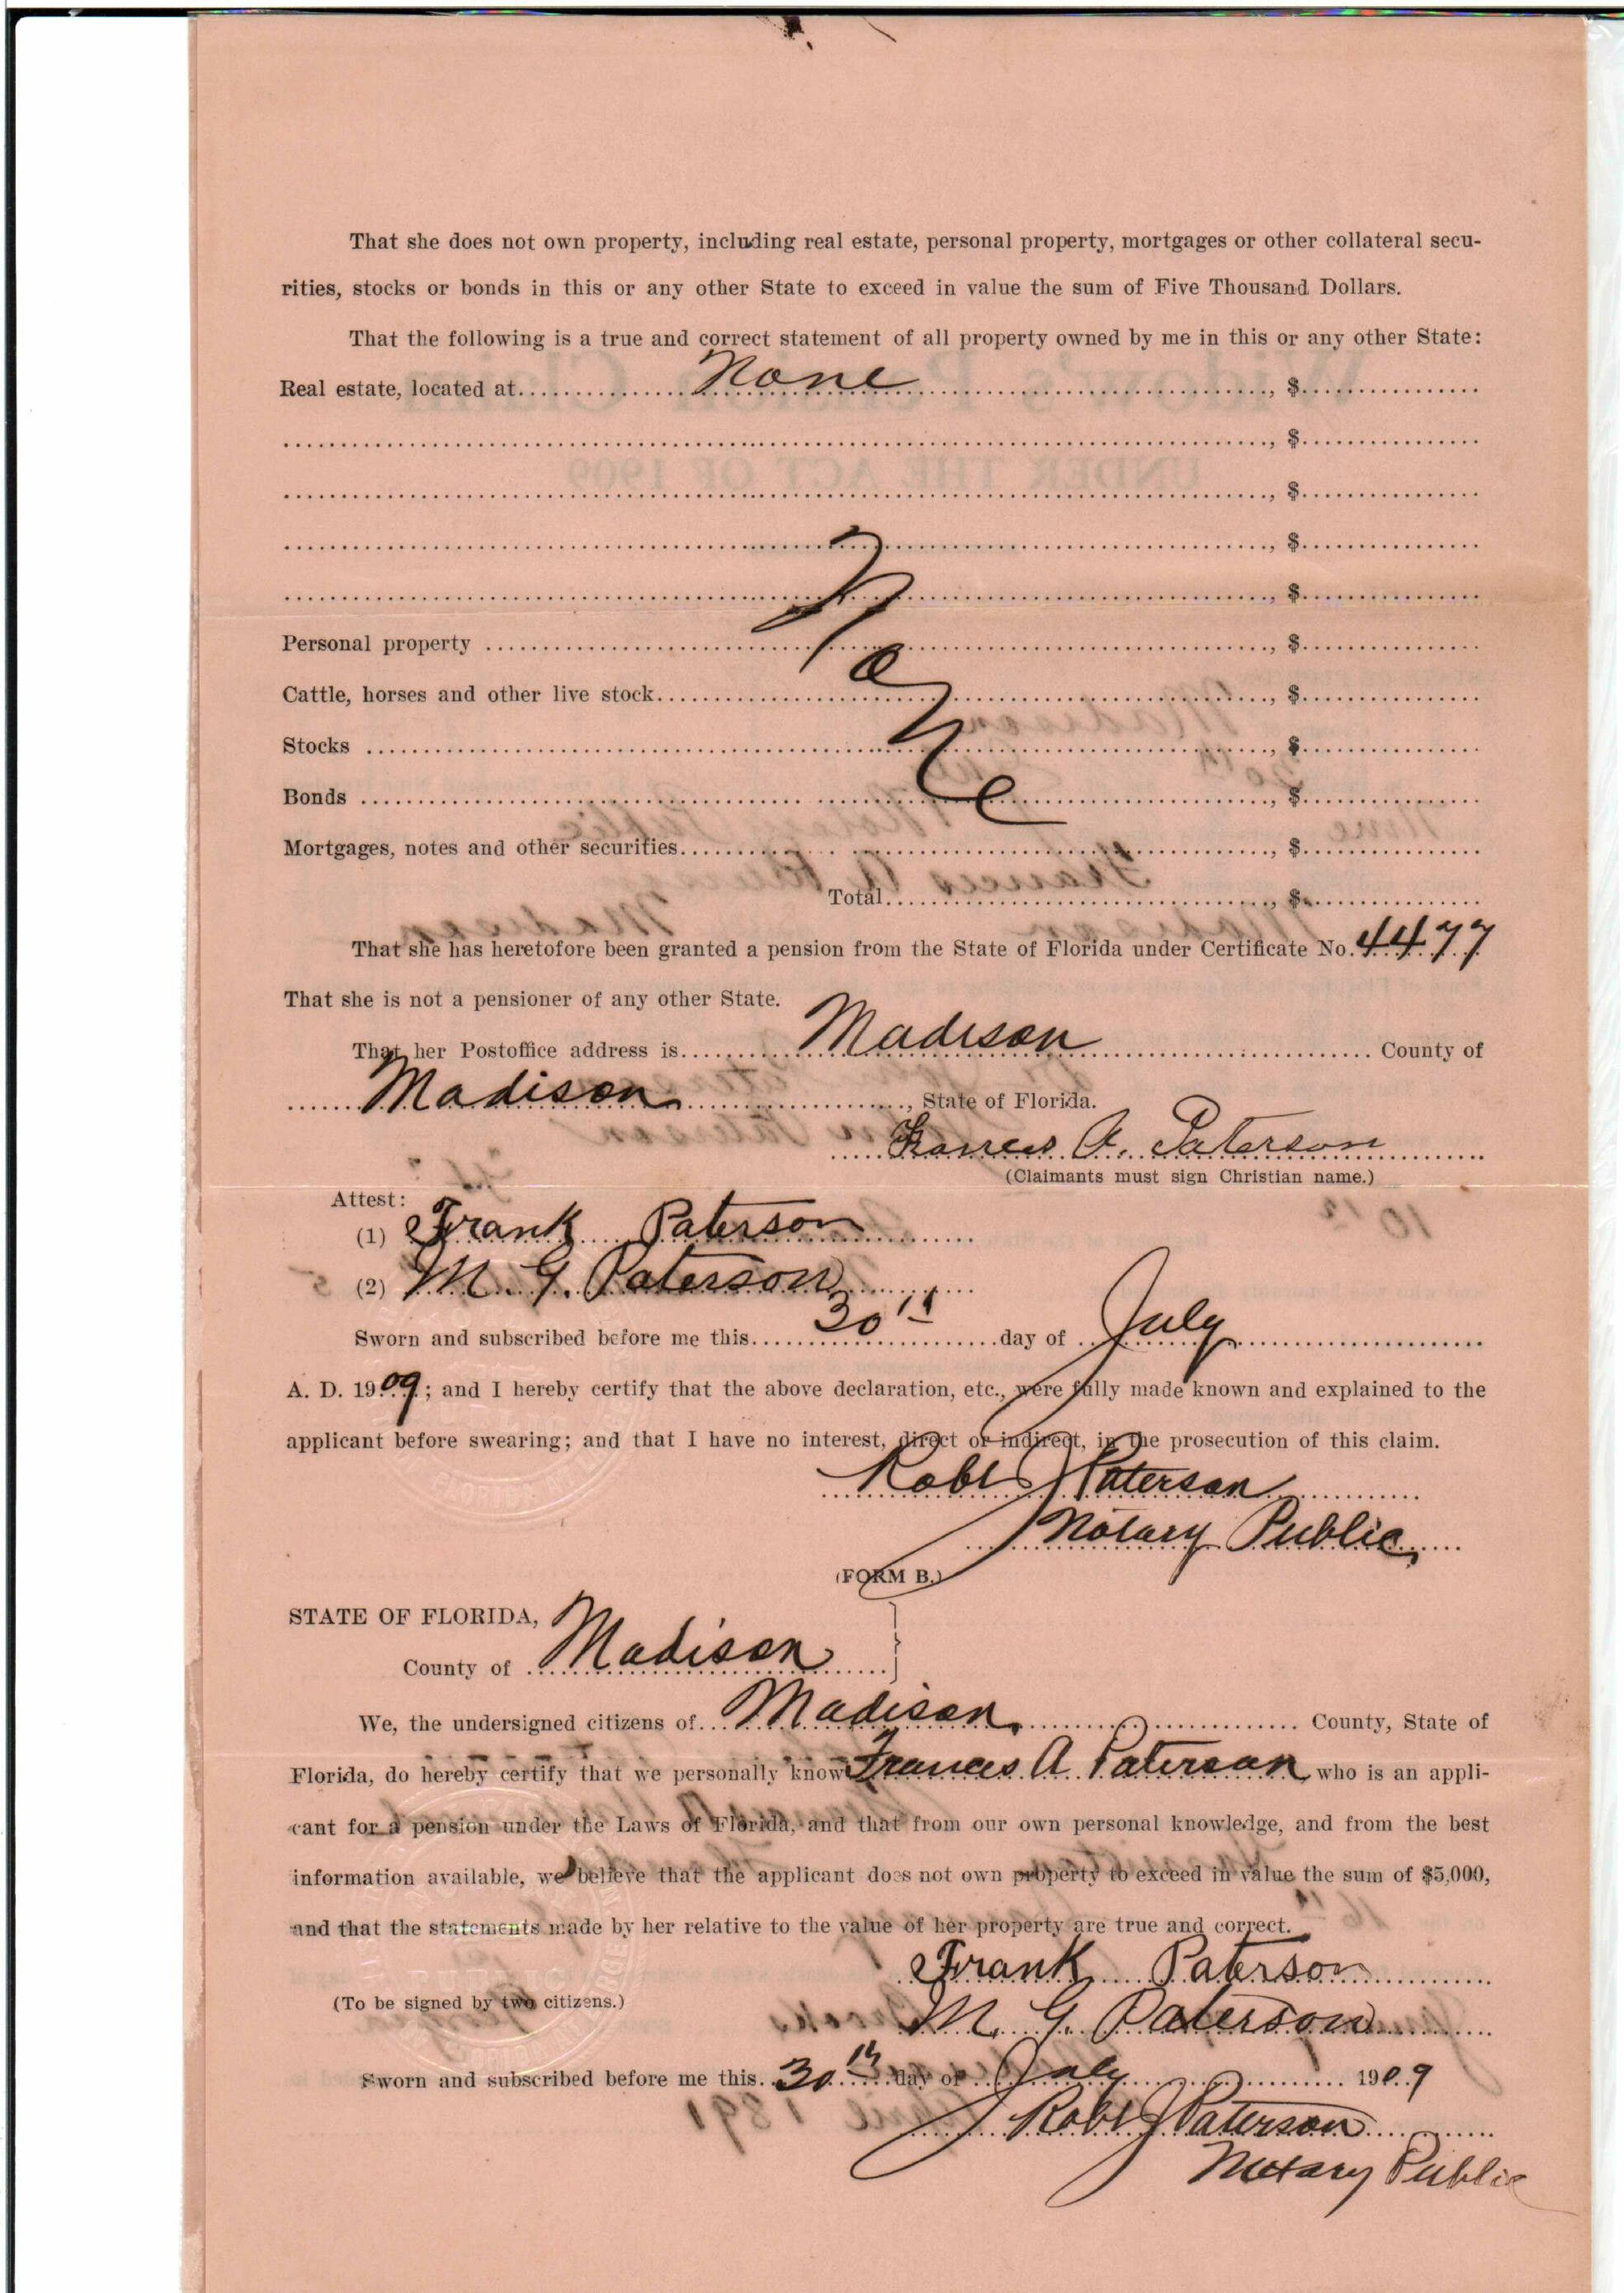 That she does not own property, including real estate, personal property, mortgages or other collateral secu-
rities, stocks or bonds in this or any other State to exceed in value the sum of Five Thousand Dollars.
That the following is a true and correct statement of all property owned by me in this or any other State:
Real estate, located at.............None............................, $................
............................................................, $................
............................................................, $................
............................................................, $................
............................................................, $................
None
Personal property ............................................, $................
Cattle, horses and other live stock............................, $................
Stocks ............................................, $................
Bonds ............................................, $................
Mortgages, notes and other securities............................, $................
Total............................, $................
That she has heretofore been granted a pension from the State of Florida under Certificate No. 4477
That she is not a pensioner of any other State.
That her Postoffice address is.......... Madison .......................... County of
...... Madison ......................, State of Florida.
Frances A. Paterson
(Claimants must sign Christian name.)
Attest:
(1) Frank Paterson
(2) M. G. Paterson
Sworn and subscribed before me this..... 30th ..........day of .. July ....................
A. D. 1909; and I hereby certify that the above declaration, etc., were fully made known and explained to the
applicant before swearing; and that I have no interest, direct or indirect, in the prosecution of this claim.
Robt J Paterson
Notary Public
(FORM B.)
STATE OF FLORIDA,
County of .. Madison ......
We, the undersigned citizens of... Madison ...................... County, State of
Florida, do hereby certify that we personally know Frances A Paterson who is an appli-
cant for a pension under the Laws of Florida, and that from our own personal knowledge, and from the best
information available, we believe that the applicant does not own property to exceed in value the sum of $5,000,
and that the statements made by her relative to the value of her property are true and correct.
Frank Paterson
(To be signed by two citizens.)
M. G. Paterson
Sworn and subscribed before me this. 30th ....day of .. July .................... 1909
Robt J Paterson
Notary Public